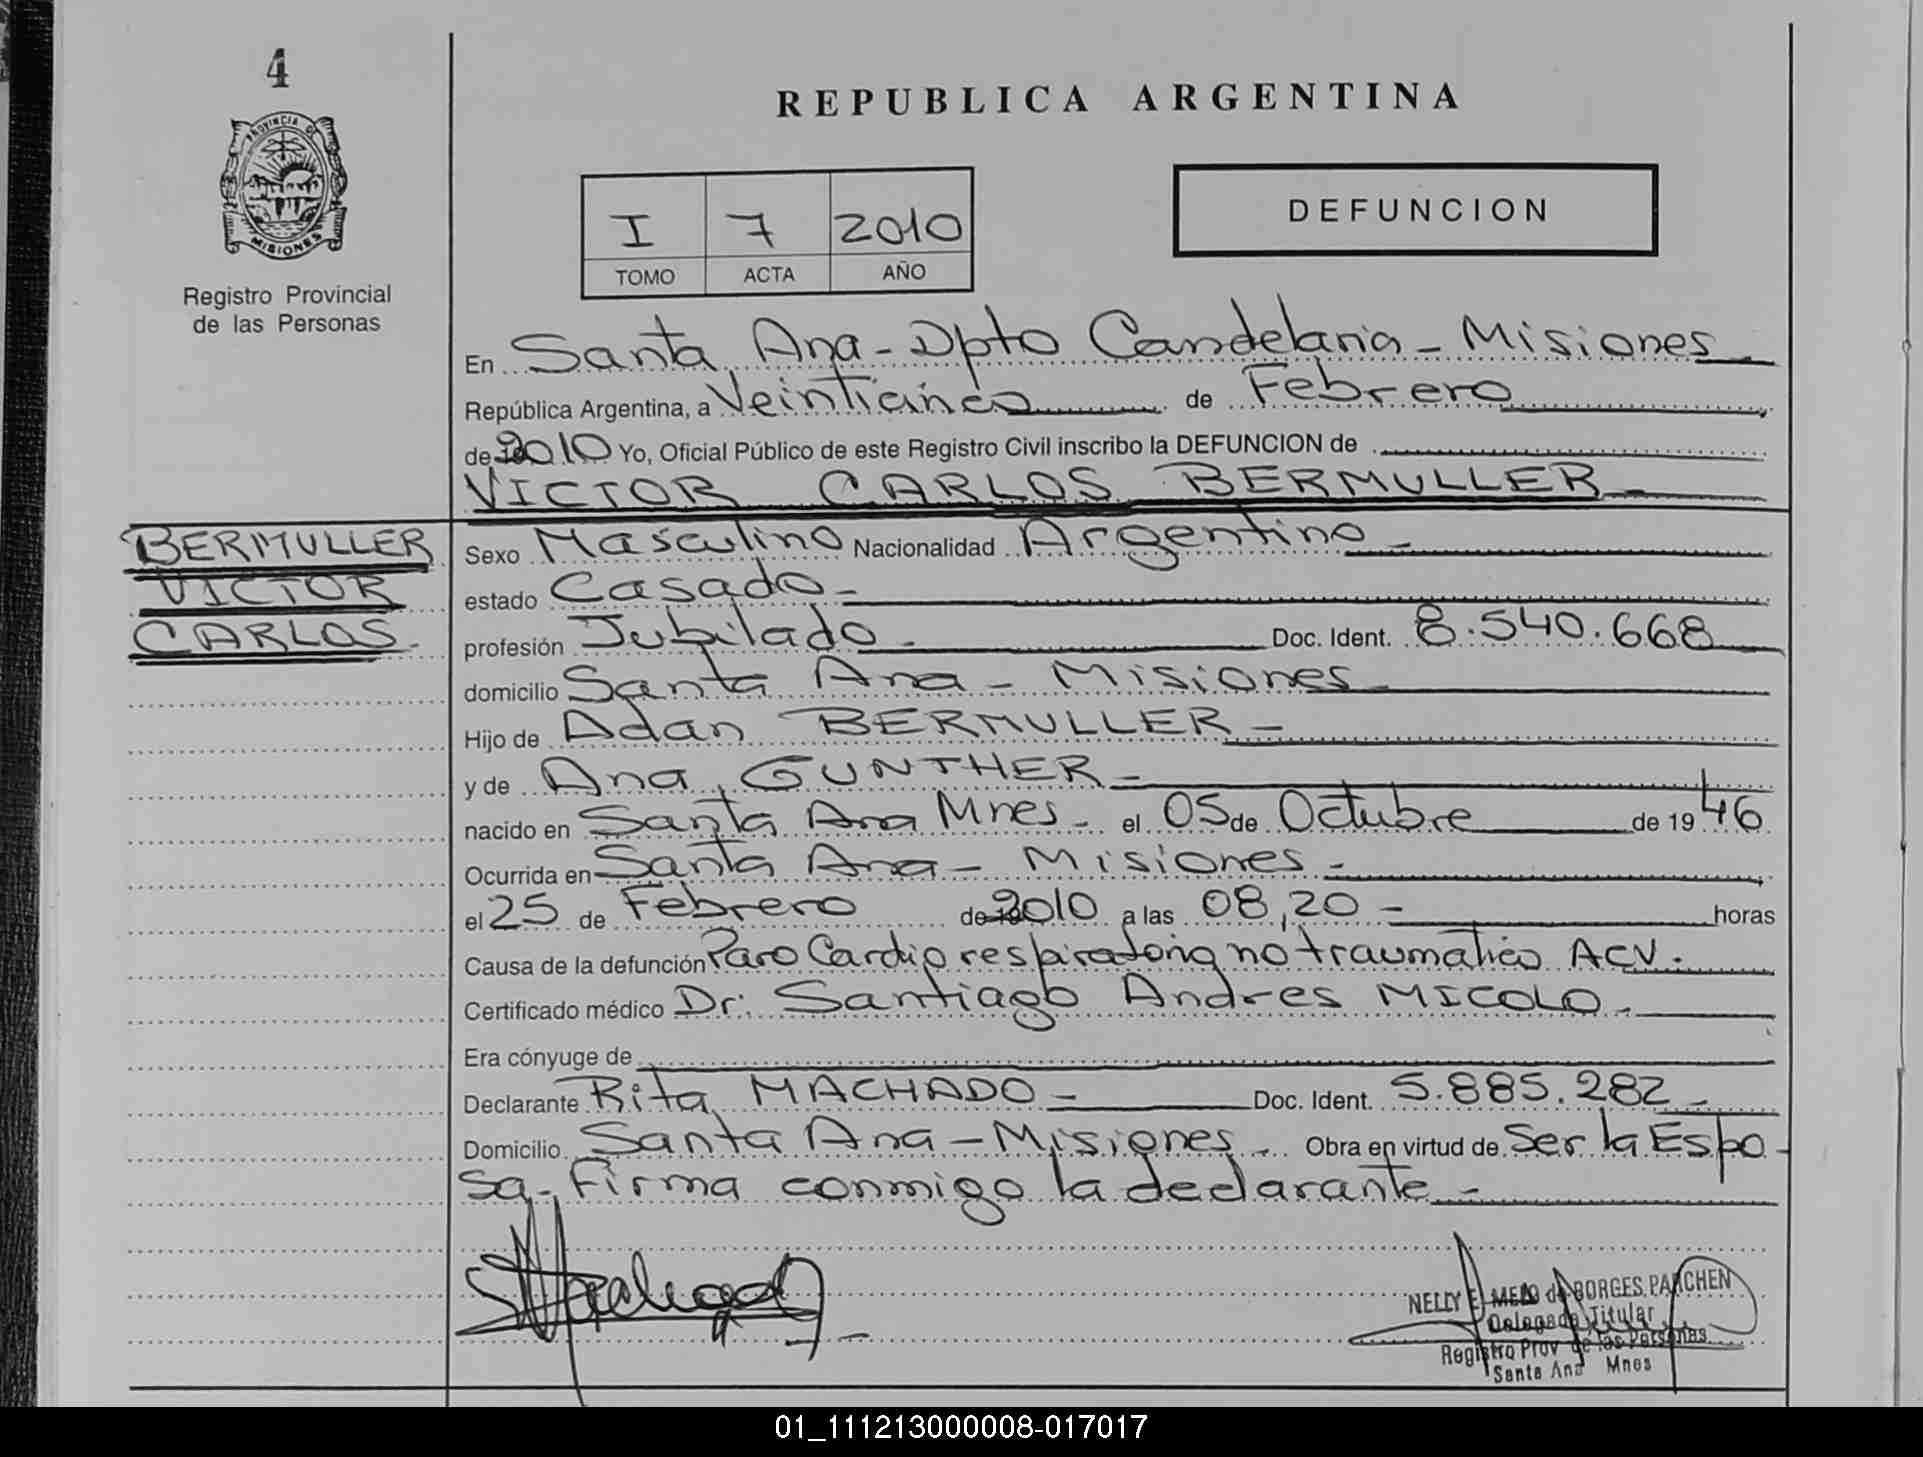 4
REPUBLICA ARGENTINA
PROVINCIA DE
MISIONES
Registro Provincial
de las Personas
I 7 2010
TOMO ACTA AÑO
DEFUNCION
En Santa Ana - Dpto Candelaria - Misiones
República Argentina, a Veinticinco de Febrero
de 2010 Yo, Oficial Público de este Registro Civil inscribo la DEFUNCION de
VICTOR CARLOS BERMULLER -
BERMULLER
VICTOR
CARLOS
Sexo Masculino Nacionalidad Argentino -
estado Casado -
profesión Jubilado - Doc. Ident. 8.540.668
domicilio Santa Ana - Misiones -
Hijo de Adan BERMULLER -
y de Ana GUNTHER -
nacido en Santa Ana Mnes - el 05 de Octubre de 1946
Ocurrida en Santa Ana - Misiones -
el 25 de Febrero de 2010 a las 08,20 - horas
Causa de la defunción Paro Cardio respiratorio no traumatico ACV.
Certificado médico Dr: Santiago Andres MICOLO -
Era cónyuge de
Declarante Rita MACHADO - Doc. Ident. 5.885.282 -
Domicilio Santa Ana - Misiones - Obra en virtud de Ser la Espo -
sa - Firma conmigo la declarante -
NELLY E. MELO de BORGES PARCHEN
Delegada Titular
Registro Prov de las Personas
Santa Ana Mnes
01_111213000008-017017